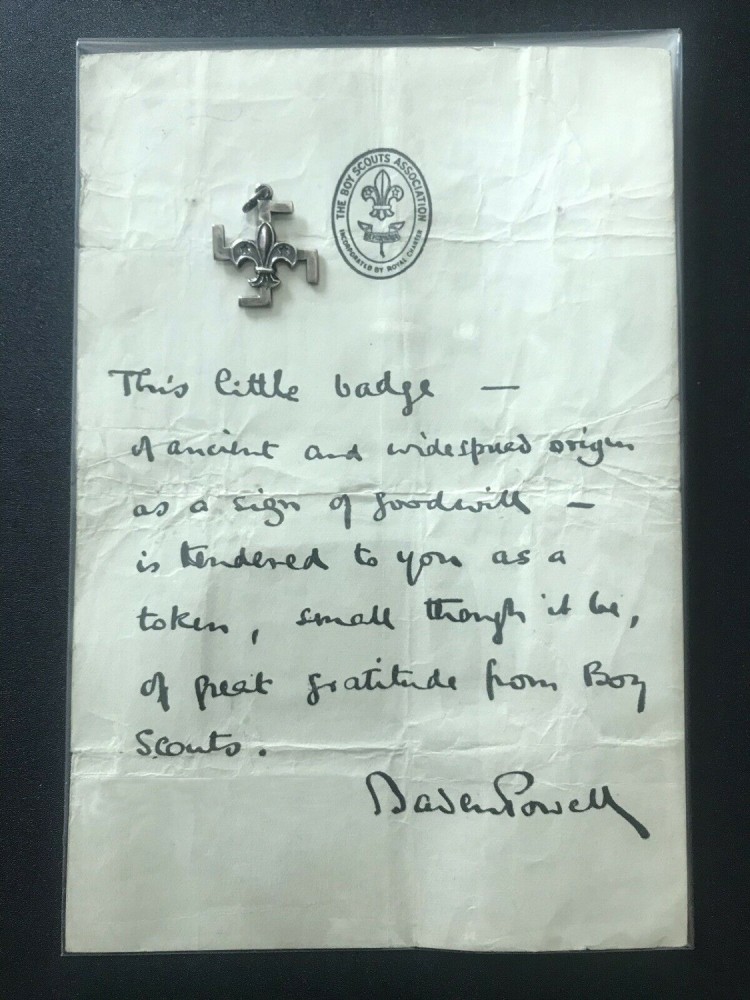 THE BOY SCOUTS ASSOCIATION
INCORPORATED BY ROYAL CHARTER
This little badge —
of ancient and widespread origin
as a sign of goodwill —
is tendered to you as a
token, small though it be,
of great gratitude from Boy
Scouts.
Baden Powell